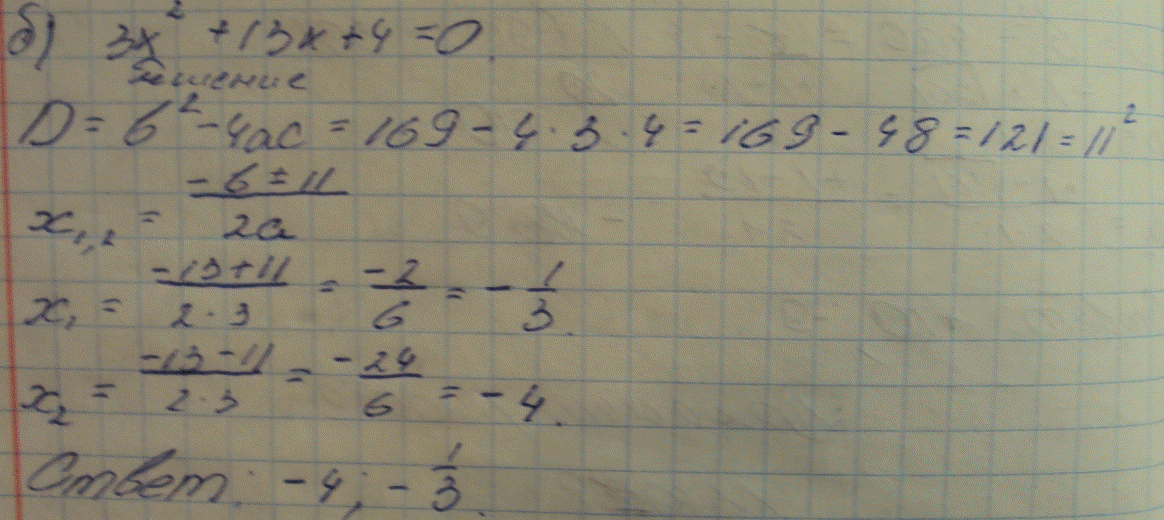 б) 3x² + 13x + 4 = 0.
Решение
D = b² - 4ac = 169 - 4 · 3 · 4 = 169 - 48 = 121 = 11²
x₁,₂ = (-b ± 11)/(2a)
x₁ = (-13 + 11)/(2 · 3) = (-2)/6 = -1/3.
x₂ = (-13 - 11)/(2 · 3) = (-24)/6 = -4.
Ответ: -4; -1/3.